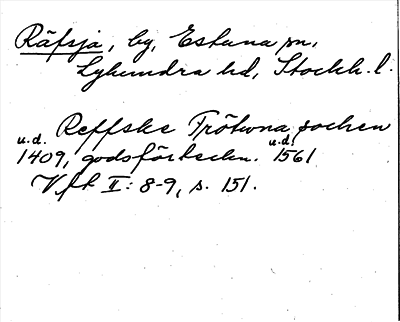 Räfsja, by, Estuna sn,
Lyhundra hd, Stockh. l.
Reffske Fröhwna sochen
u.d. 1409, godsförteckn. u.d. 1561
Vfk II: 8-9, s. 151.